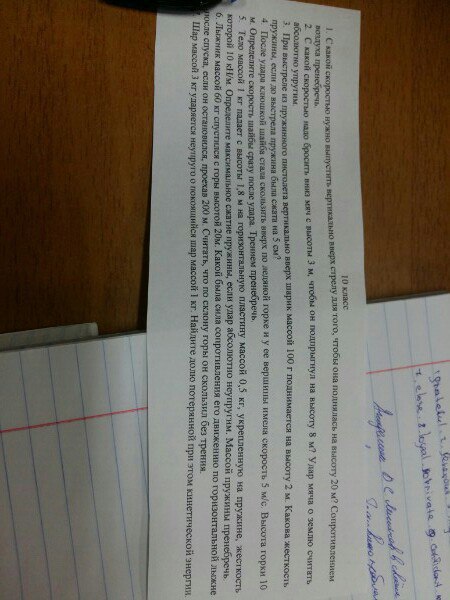 10 класс
1. С какой скоростью нужно выпустить вертикально вверх стрелу для того, чтобы она поднялась на высоту 20 м? Сопротивлением
воздуха пренебречь.
2. С какой скоростью надо бросить вниз мяч с высоты 3 м, чтобы он подпрыгнул на высоту 8 м? Удар мяча о землю считать
абсолютно упругим.
3. При выстреле из пружинного пистолета вертикально вверх шарик массой 100 г поднимается на высоту 2 м. Какова жесткость
пружины, если до выстрела пружина была сжата на 5 см?
4. После удара клюшкой шайба стала скользить вверх по ледяной горке и у ее вершины имела скорость 5 м/с. Высота горки 10
м. Определите скорость шайбы сразу после удара. Трением пренебречь.
5. Тело массой 1 кг падает с высоты 1,8 м на горизонтальную пластину массой 0,5 кг, укрепленную на пружине, жесткость
которой 10 кН/м. Определите максимальное сжатие пружины, если удар абсолютно неупругим. Массой пружины пренебречь.
6. Лыжник массой 60 кг спустился с горы высотой 20м. Какой была сила сопротивления его движению по горизонтальной лыжне
после спуска, если он остановился, проехав 200 м. Считать, что по склону горы он скользил без трения.
Шар массой 3 кг ударяется неупруго о покоящийся шар массой 1 кг. Найдите долю потерянной при этом кинетической энергии